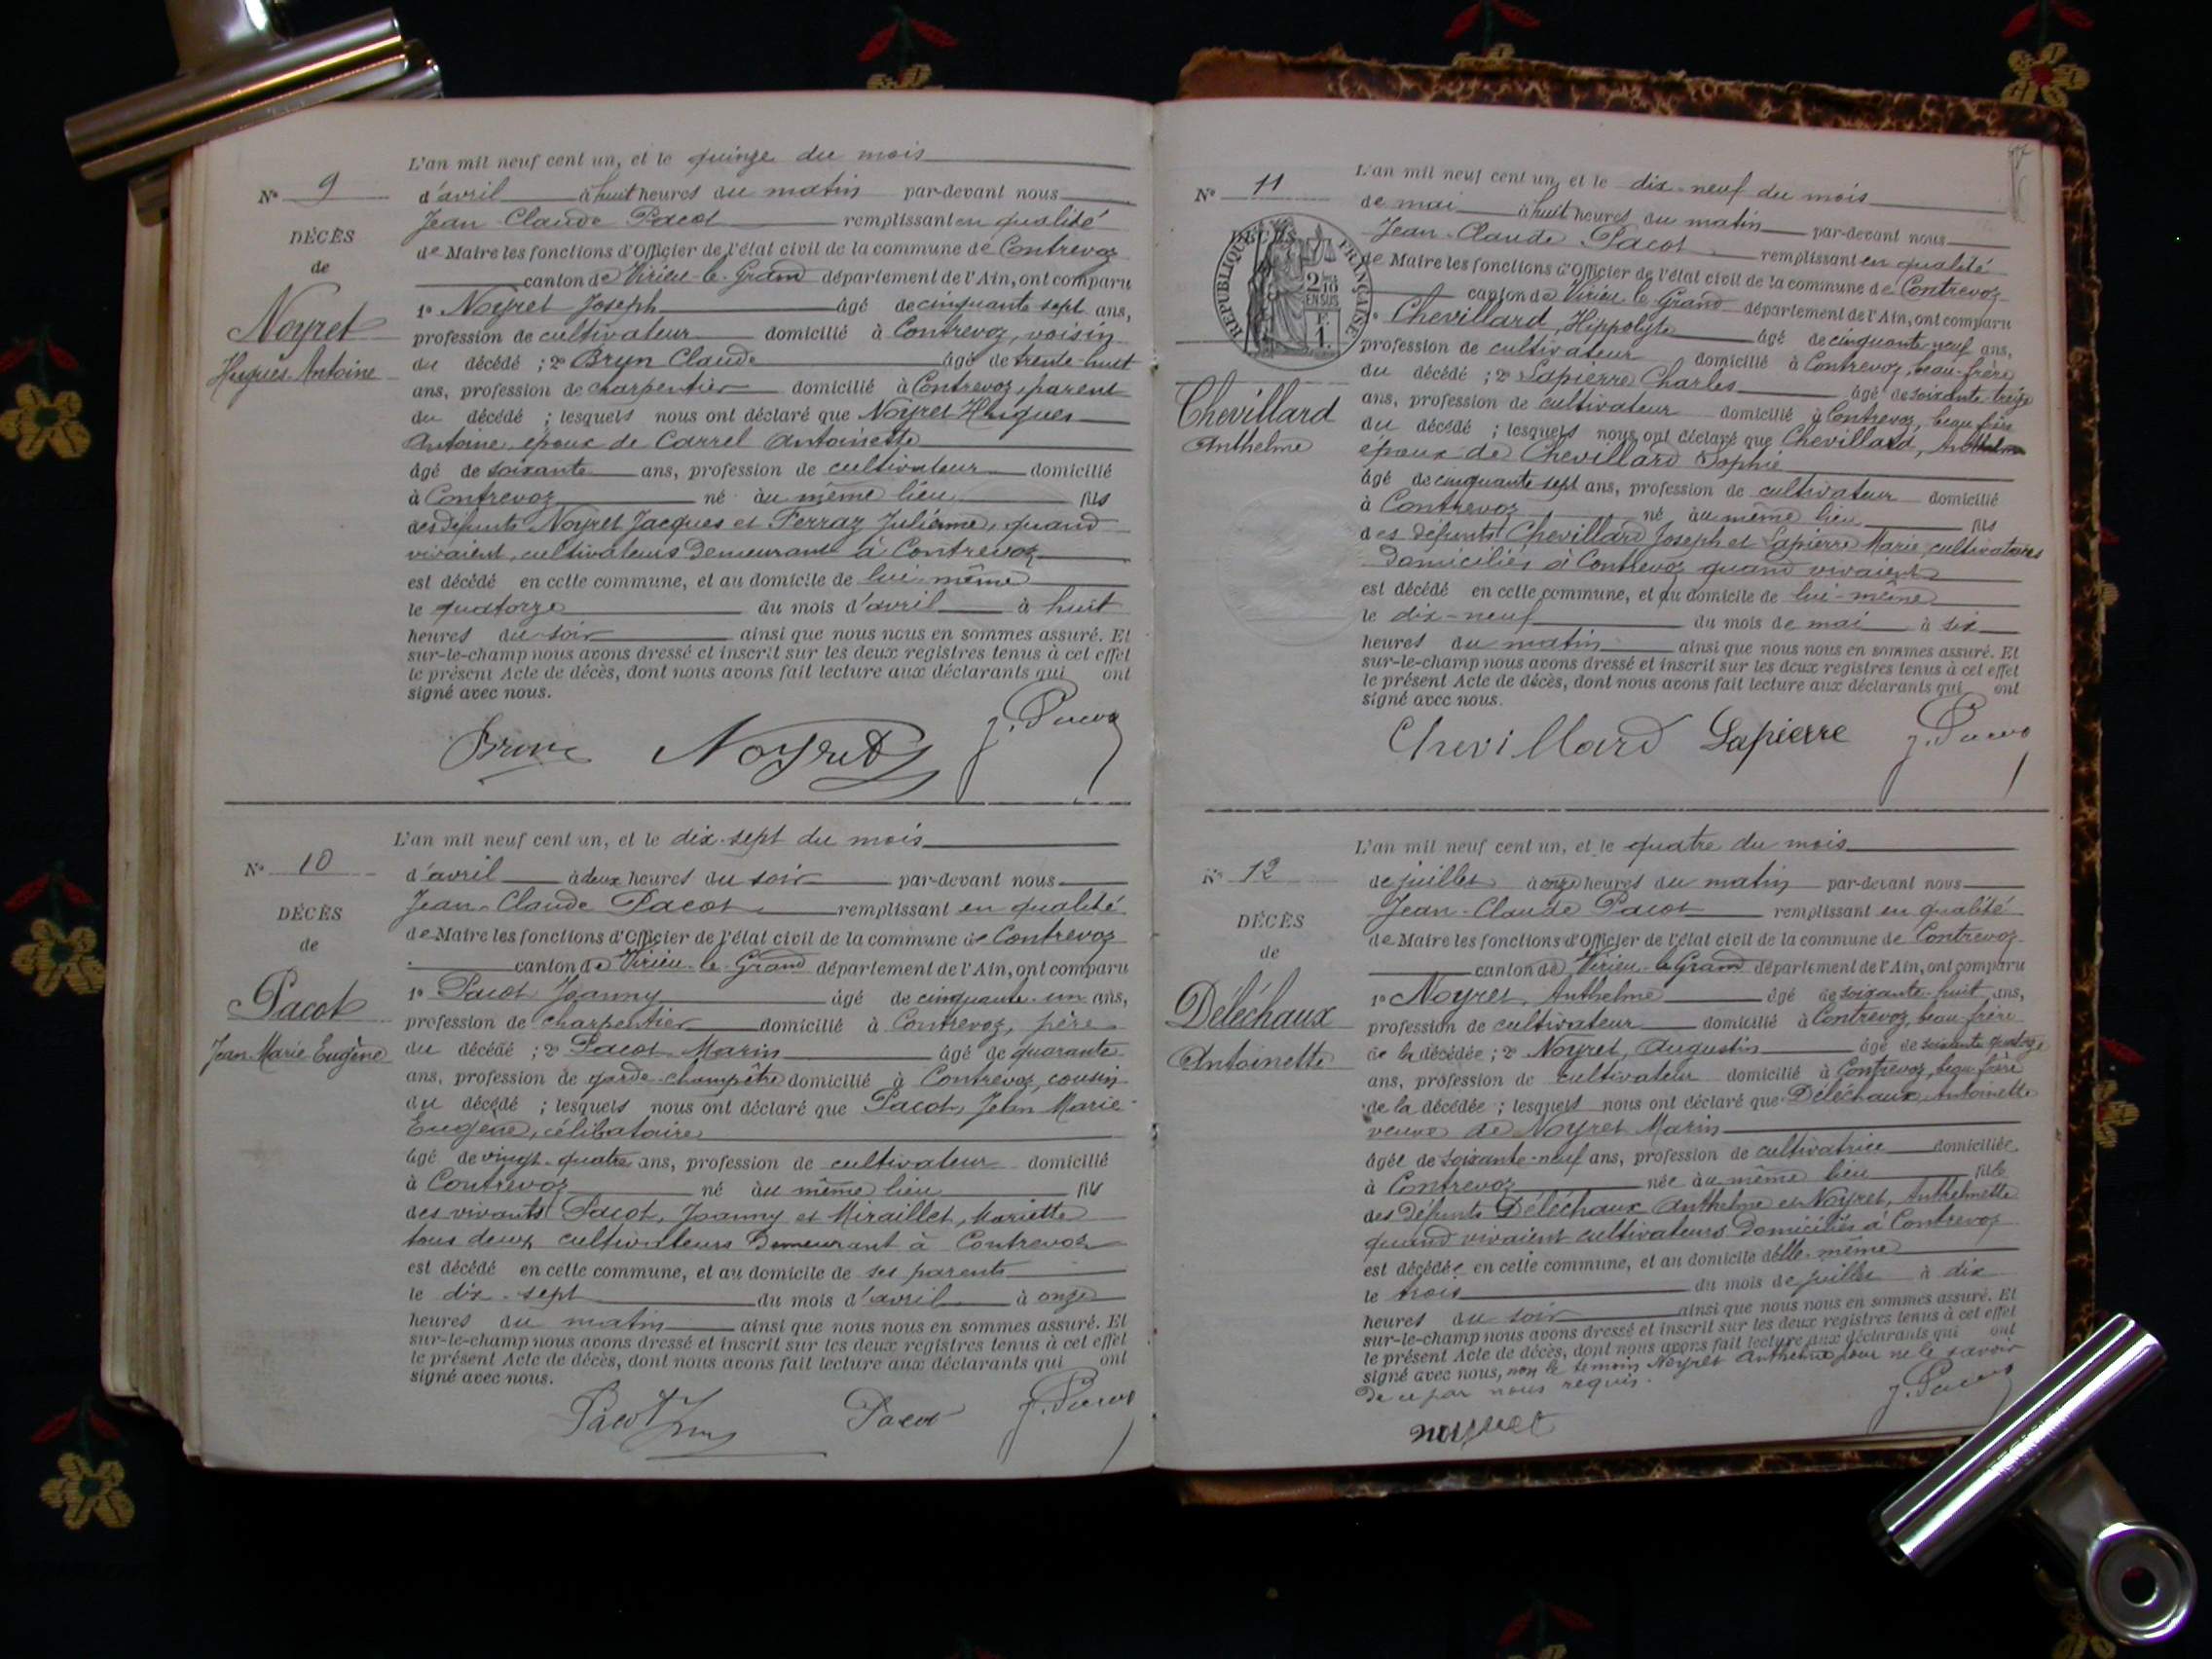 N° 9
DÉCÈS
de
Noyret
Hugues Antoine
L'an mil neuf cent un, et le quinze du mois
d'avril à huit heures du matin par-devant nous
Jean Claude Pacot remplissant en qualité
de Maire les fonctions d'Officier de l'état civil de la commune de Contrevoz
canton de Virieu-le-Grand département de l'Ain, ont comparu
1° Noyret Joseph âgé de cinquante sept ans,
profession de cultivateur domicilié à Contrevoz, voisin
du décédé ; 2° Bryn Claude âgé de trente-huit
ans, profession de charpentier domicilié à Contrevoz, parent
du décédé ; lesquels nous ont déclaré que Noyret Hugues
Antoine, époux de Carrel Antoinette
âgé de soixante ans, profession de cultivateur domicilié
à Contrevoz né au même lieu fils
des défunts Noyret Jacques et Ferraz Julienne, quand
vivaient, cultivateurs demeurant à Contrevoz
est décédé en cette commune, et au domicile de lui-même
le quatorze du mois d'avril à huit
heures du soir ainsi que nous nous en sommes assuré. Et
sur-le-champ nous avons dressé et inscrit sur les deux registres tenus à cet effet
le présent Acte de décès, dont nous avons fait lecture aux déclarants qui ont
signé avec nous.
Noyret J. Pacot
N° 10
DÉCÈS
de
Pacot
Jean Marie Eugène
L'an mil neuf cent un, et le dix-sept du mois
d'avril à deux heures du soir par-devant nous
Jean-Claude Pacot remplissant en qualité
de Maire les fonctions d'Officier de l'état civil de la commune de Contrevoz
canton de Virieu-le-Grand département de l'Ain, ont comparu
1° Pacot Joanny âgé de cinquante-un ans,
profession de charpentier domicilié à Contrevoz, père
du décédé ; 2° Pacot Marin âgé de quarante
ans, profession de garde-champêtre domicilié à Contrevoz, cousin
du décédé ; lesquels nous ont déclaré que Pacot, Jean Marie
Eugène, célibataire
âgé de vingt-quatre ans, profession de cultivateur domicilié
à Contrevoz né au même lieu fils
des vivants Pacot, Joanny et Miraillet, Mariette
tous deux cultivateurs demeurant à Contrevoz
est décédé en cette commune, et au domicile de ses parents
le dix-sept du mois d'avril à onze
heures du matin ainsi que nous nous en sommes assuré. Et
sur-le-champ nous avons dressé et inscrit sur les deux registres tenus à cet effet
le présent Acte de décès, dont nous avons fait lecture aux déclarants qui ont
signé avec nous.
Pacot Pacot J. Pacot
N° 11
RÉPUBLIQUE FRANÇAISE
2/10
EN SUS
F.
1.
Chevillard
Anthelme
L'an mil neuf cent un, et le dix-neuf du mois
de mai à huit heures du matin par-devant nous
Jean-Claude Pacot remplissant en qualité
de Maire les fonctions d'Officier de l'état civil de la commune de Contrevoz
canton de Virieu-le-Grand département de l'Ain, ont comparu
1° Chevillard, Hippolyte âgé de cinquante-neuf ans,
profession de cultivateur domicilié à Contrevoz, beau-frère
du décédé ; 2° Lapierre Charles âgé de soixante-treize
ans, profession de cultivateur domicilié à Contrevoz, beau frère
du décédé ; lesquels nous ont déclaré que Chevillard, Anthelme
époux de Chevillard Sophie
âgé de cinquante sept ans, profession de cultivateur domicilié
à Contrevoz né au même lieu fils
des défunts Chevillard Joseph et Lapierre Marie, cultivateurs
domiciliés à Contrevoz quand vivaient
est décédé en cette commune, et au domicile de lui-même
le dix-neuf du mois de mai à six
heures du matin ainsi que nous nous en sommes assuré. Et
sur-le-champ nous avons dressé et inscrit sur les deux registres tenus à cet effet
le présent Acte de décès, dont nous avons fait lecture aux déclarants qui ont
signé avec nous.
Chevillard Lapierre J. Pacot
N° 12
DÉCÈS
de
Déléchaux
Antoinette
L'an mil neuf cent un, et le quatre du mois
de juillet à onze heures du matin par-devant nous
Jean-Claude Pacot remplissant en qualité
de Maire les fonctions d'Officier de l'état civil de la commune de Contrevoz
canton de Virieu-le-Grand département de l'Ain, ont comparu
1° Noyret, Anthelme âgé de soixante-huit ans,
profession de cultivateur domicilié à Contrevoz, beau-frère
de la décédée ; 2° Noyret, Augustin âgé de soixante quatorze
ans, profession de cultivateur domicilié à Contrevoz, beau-frère
de la décédée ; lesquels nous ont déclaré que Déléchaux, Antoinette
veuve de Noyret Marin
âgée de soixante-neuf ans, profession de cultivatrice domiciliée
à Contrevoz née au même lieu fille
des défunts Déléchaux Anthelme et Noyret, Anthelmette
quand vivaient cultivateurs domiciliés à Contrevoz
est décédée en cette commune, et au domicile d'elle-même
le trois du mois de juillet à dix
heures du soir ainsi que nous nous en sommes assuré. Et
sur-le-champ nous avons dressé et inscrit sur les deux registres tenus à cet effet
le présent Acte de décès, dont nous avons fait lecture aux déclarants qui ont
signé avec nous, non le témoin Noyret Anthelme pour ne le savoir
de ce par nous requis.
J. Pacot
noyret